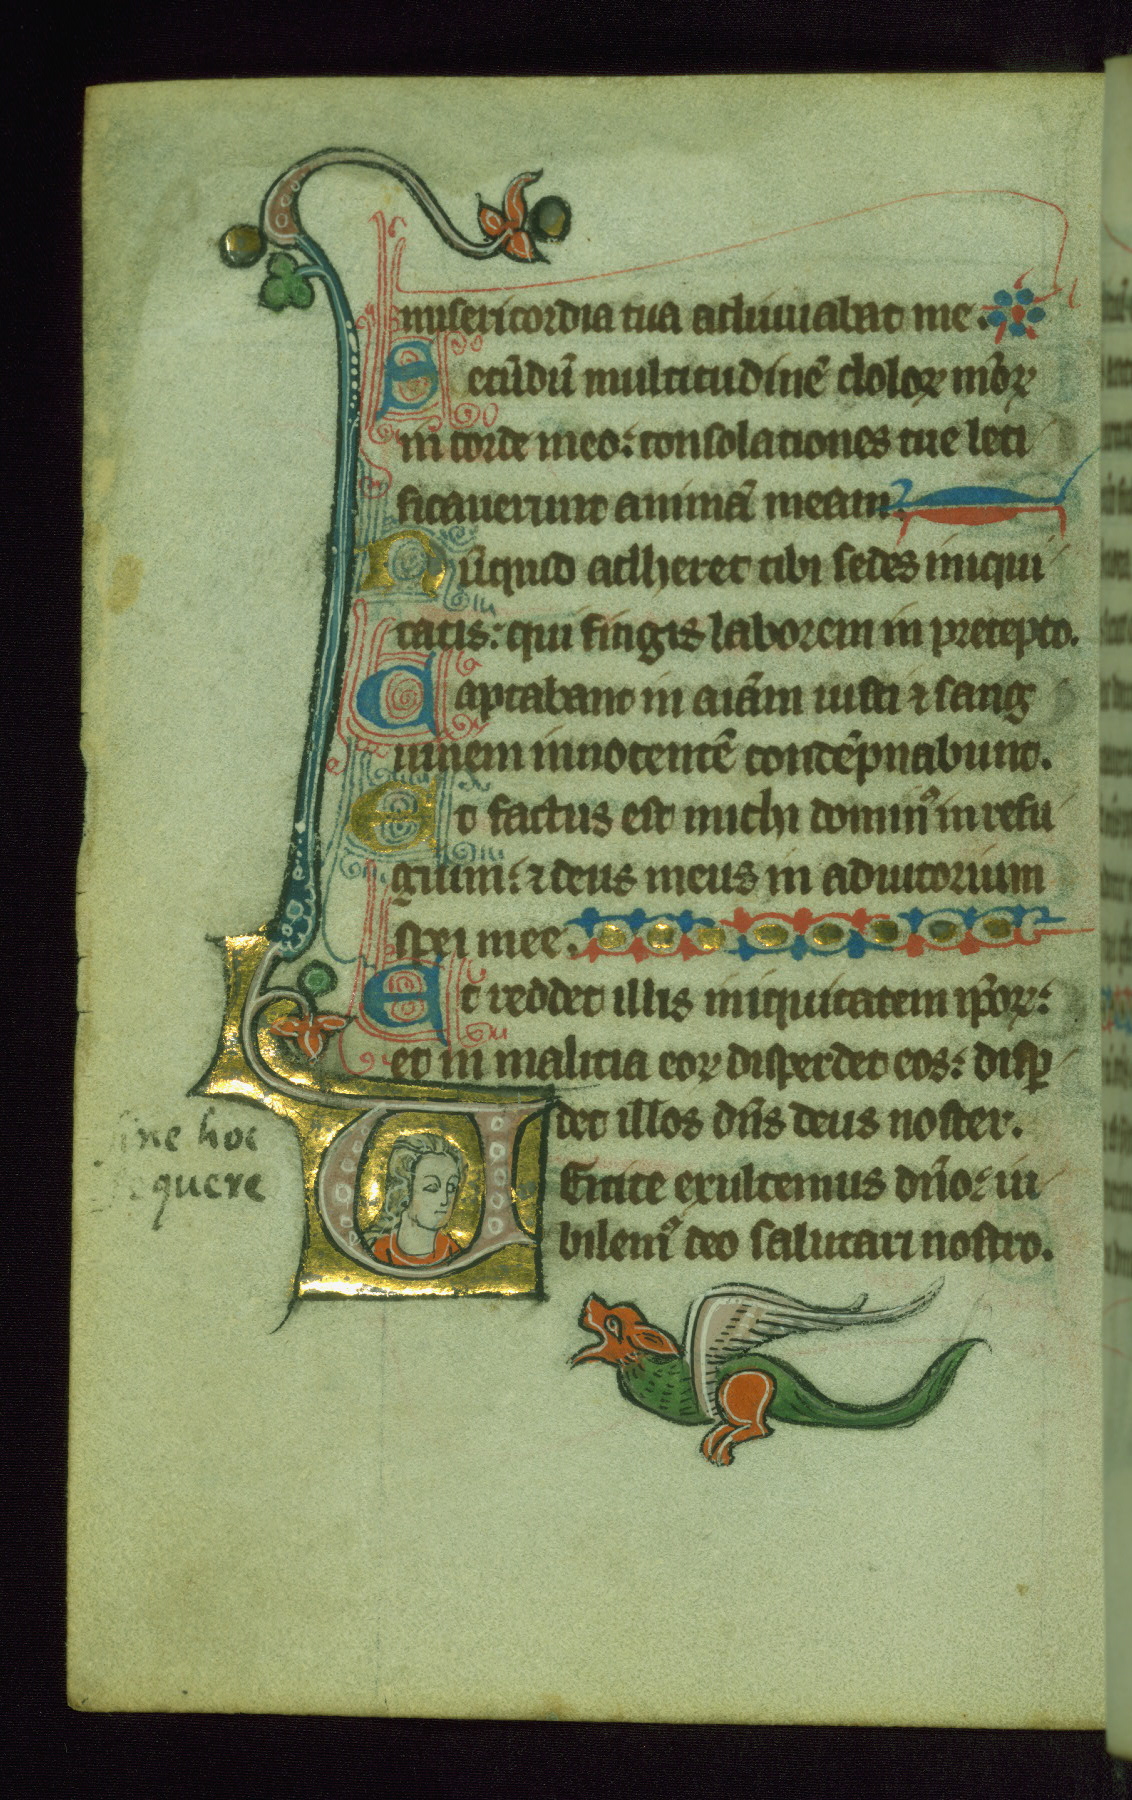 misericordia tua adiuuabat me.
Scd̄m̄ multitudinē doloꝝ mōꝝ
in corde meo: consolationes tue leti
ficauerunt animā meam.
Nūquid adheret tibi sedes iniqui
tatis: qui fingis laborem in precepto.
Captabant in aīam iusti ⁊ sang
uinem innocentē condēpnabunt.
Et factus est michi dominꝰ in refu
gium: ⁊ deus meus in adiutorium
spei mee.
Et reddet illis iniquitatem ip̄oꝝ:
et in malicia eoꝝ disperdet eos: disꝑ
det illos dn̄s deus noster.
Uenite exultemus dn̄o: iu
bilemꝰ deo salutari nostro.
sine hoc
quere